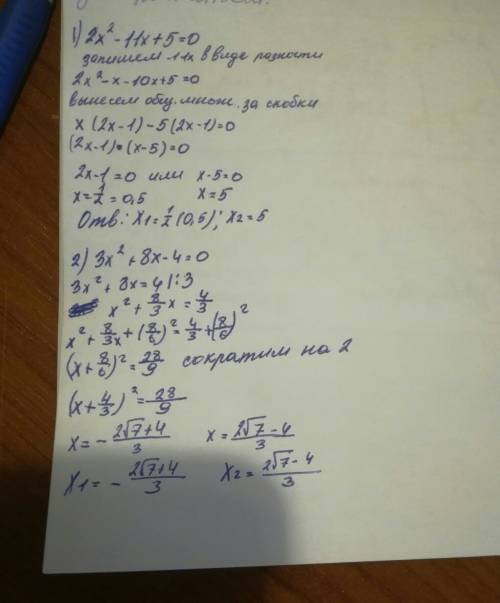 1) 2x² - 11x + 5 = 0
запишем 11x в виде разности
2x² - x - 10x + 5 = 0
вынесем общ. множ. за скобки
x (2x-1) - 5 (2x-1) = 0
(2x-1)•(x-5) = 0
2x-1 = 0 или x-5=0
x = 1/2 = 0,5 x = 5
Отв: x1 = 1/2 (0,5); x2 = 5
2) 3x² + 8x - 4 = 0
3x² + 8x = 4 |:3
x² + 8/3 x = 4/3
x² + 8/3x + (8/6)² = 4/3 + (8/6)²
(x + 8/6)² = 28/9 сократим на 2
(x + 4/3)² = 28/9
x = - 2√7+4/3 x = 2√7-4/3
x1 = - 2√7+4/3 x2 = 2√7-4/3